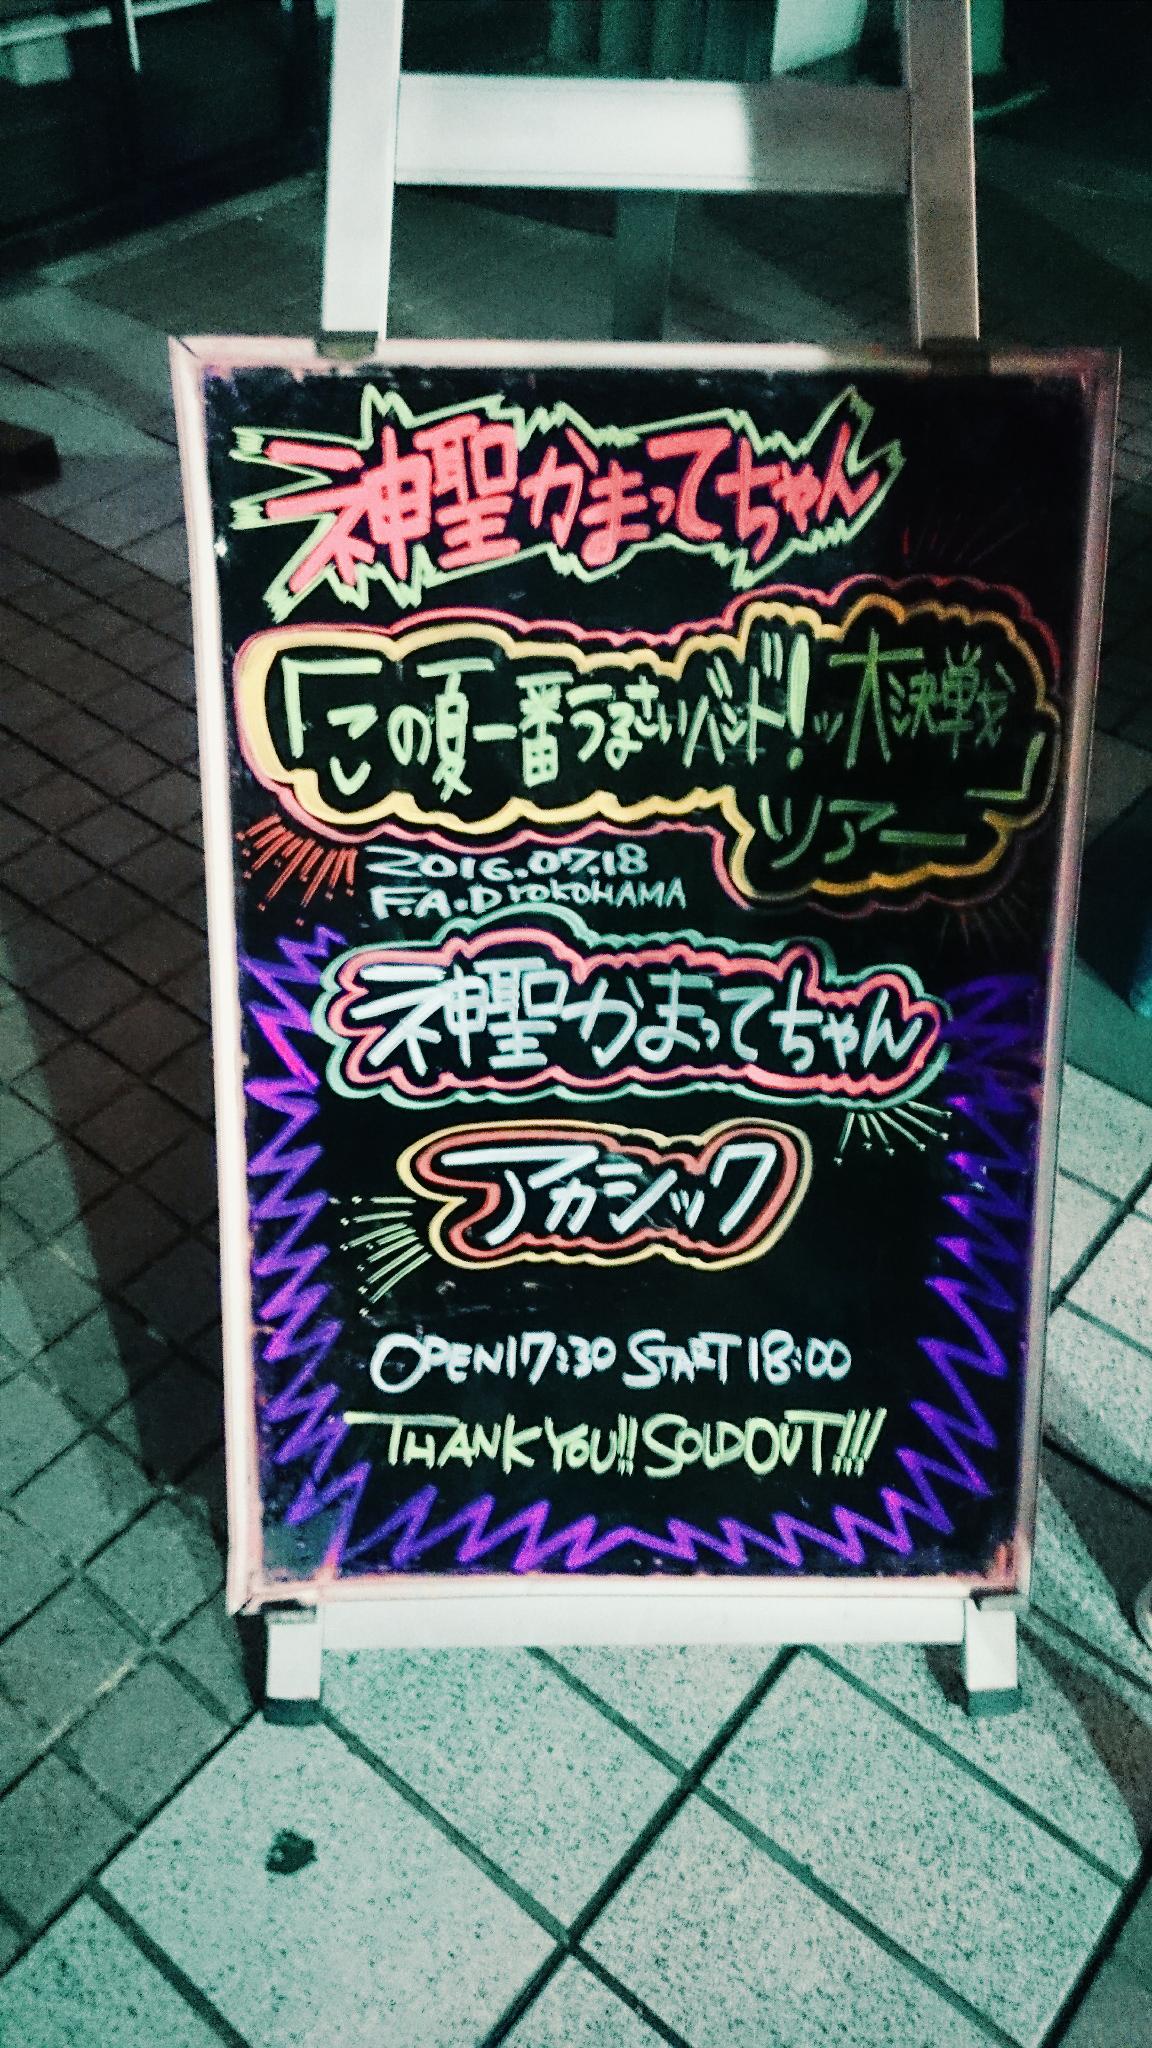 神聖かまってちゃん
「この夏一番うるさいバンド!ッ大決戦」
ツアー
2016.07.18
F.A.D YOKOHAMA
神聖かまってちゃん
アカシック
OPEN17:30 START 18:00
THANK YOU!! SOLDOUT!!!